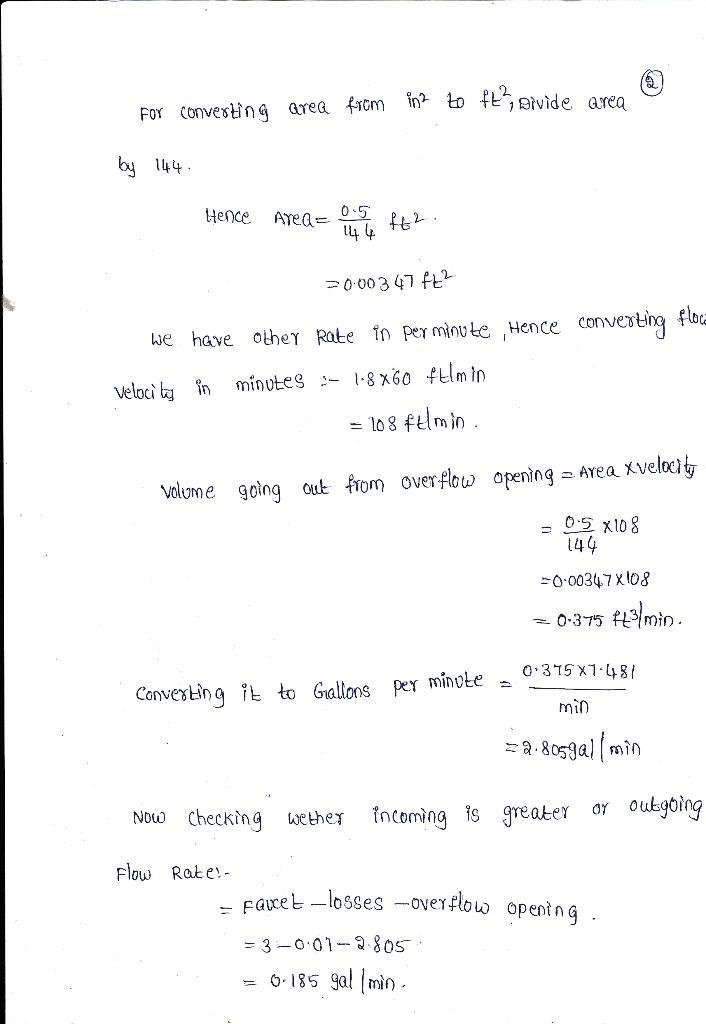 ②
For converting area from in² to ft², Divide area
by 144.
Hence Area = 0.5/144 ft².
= 0.00347 ft²
We have other Rate in per minute, Hence converting
Velocity in minutes :- 1.8×60 ft/min
= 108 ft/min.
Volume going out from overflow opening = Area × velocity
= 0.5/144 ×108
= 0.00347×108
= 0.375 ft³/min.
Converting it to Gallons per minute = 0.375×7.481/min
= 2.805gal/min
Now Checking wether incoming is greater or outgoing
Flow Rate:-
= Faucet – losses – overflow opening.
= 3 – 0.01 – 2.805
= 0.185 gal/min.